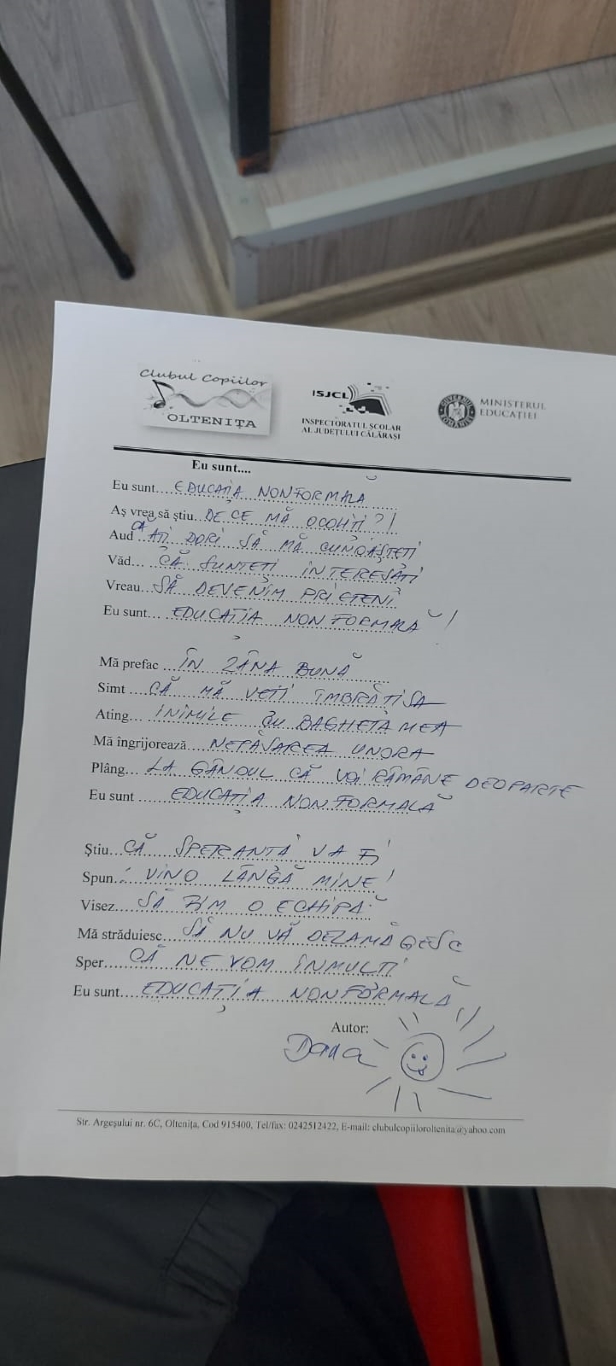 Clubul Copiilor
OLTENIȚA
ISJCL
INSPECTORATUL ȘCOLAR
AL JUDEȚULUI CĂLĂRAȘI
MINISTERUL
EDUCAȚIEI
Eu sunt....
Eu sunt... EDUCAȚIA NONFORMALĂ
Aș vrea să știu. DE CE MĂ OCOLIȚI?!
Aud CĂ AȚI DORI SĂ MĂ CUNOAȘTEȚI
Văd... CĂ SUNTEȚI INTERESAȚI
Vreau... SĂ DEVENIM PRIETENI
Eu sunt... EDUCAȚIA NONFORMALĂ!
Mă prefac ... ÎN ZÂNA BUNĂ
Simt ... CĂ MĂ VEȚI ÎMBRĂȚIȘA
Ating... INIMILE CU BAGHETA MEA
Mă îngrijorează... NEPĂSAREA UNORA
Plâng... LA GÂNDUL CĂ VOI RĂMÂNE DEOPARTE
Eu sunt ... EDUCAȚIA NONFORMALĂ
Știu... CĂ SPERANȚĂ VA FI
Spun.: VINO LÂNGĂ MINE!
Visez... SĂ FIM O ECHIPĂ
Mă străduiesc... SĂ NU VĂ DEZAMĂGESC
Sper... CĂ NE VOM ÎNMULȚI
Eu sunt... EDUCAȚIA NONFORMALĂ
Autor:
Dana
Str. Argeșului nr. 6C, Oltenița, Cod 915400, Tel/fax: 0242512422, E-mail: clubulcopiiloroltenita@yahoo.com